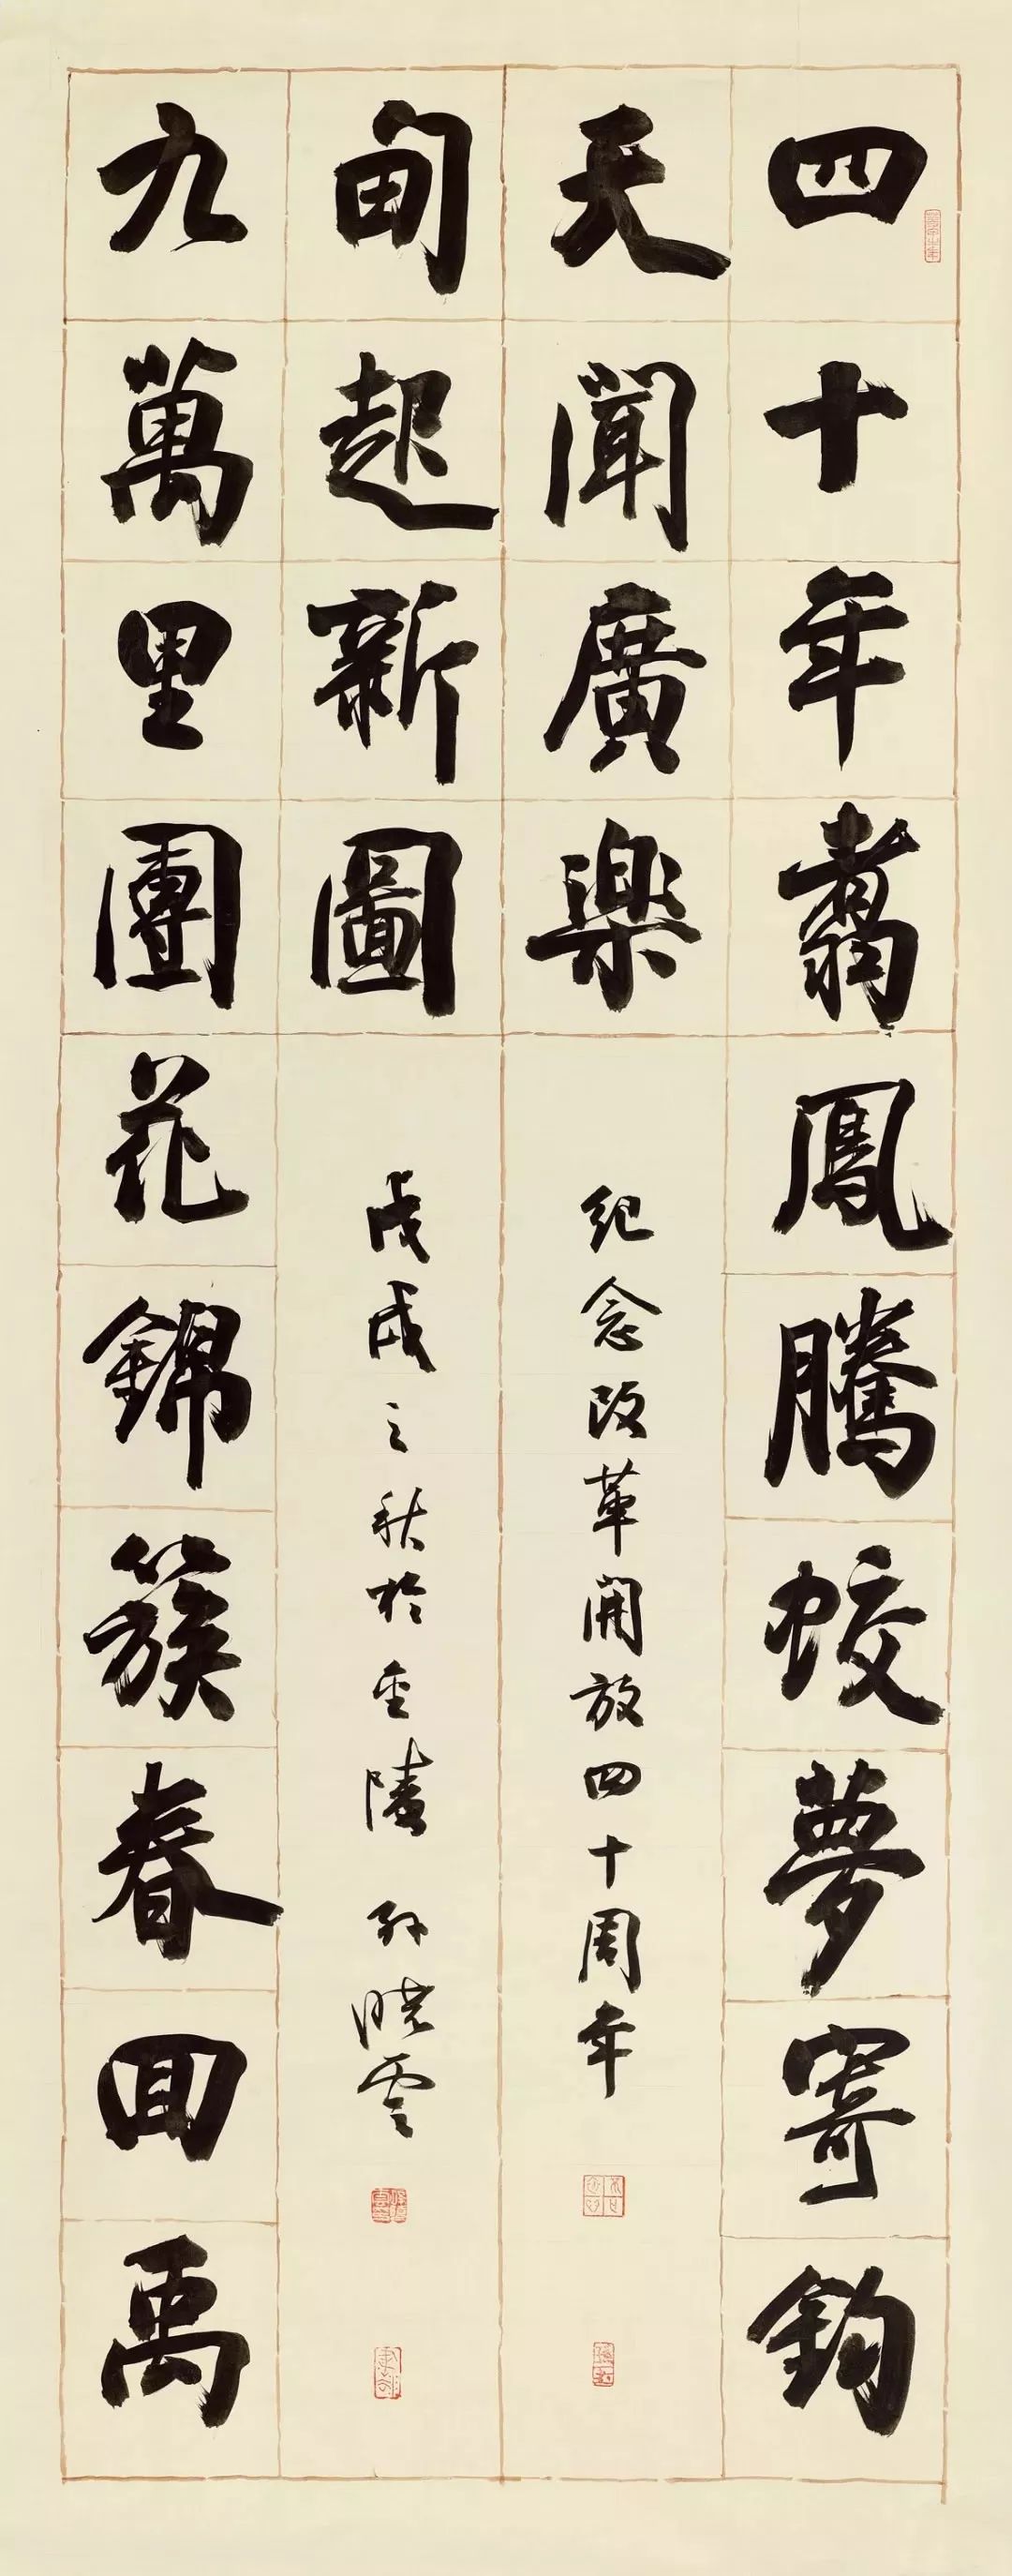 四十年翥鳳騰蛟夢寄鈞
天聞廣樂
九萬里團花錦簇春囬禹
甸起新圖
紀念改革開放四十周年
戊戌之秋於金陵 孫曉雲